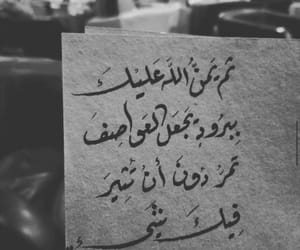 ثم يَمنُّ اللهُ عَليْكَ
ببرُودةٍ تجعَل العَواصِفَ
تمرُ دُونَ أن تُثِيرَ
فِيكَ شَيْءٍ